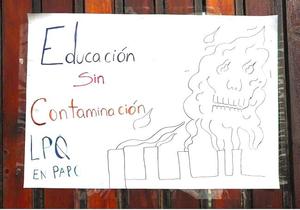 Educación
Sin
Contaminación
LPQ
EN PAPC